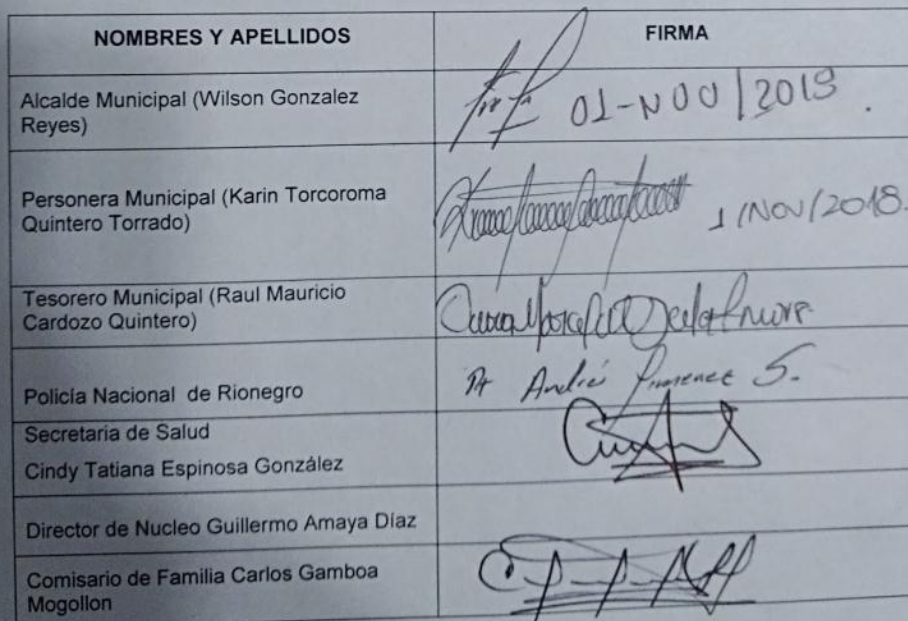 NOMBRES Y APELLIDOS FIRMA
Alcalde Municipal (Wilson Gonzalez
Reyes) 01-NOV/2018
Personera Municipal (Karin Torcoroma
Quintero Torrado) 1/NOV/2018.
Tesorero Municipal (Raul Mauricio
Cardozo Quintero)
Policía Nacional de Rionegro Andrés S.
Secretaria de Salud
Cindy Tatiana Espinosa González
Director de Nucleo Guillermo Amaya Díaz
Comisario de Familia Carlos Gamboa
Mogollon